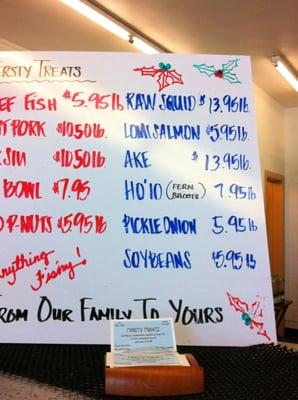 RSTY TREATS
EF FISH $5.95lb
PORK $10.50 lb.
$10.50 lb.
BOWL $7.95
NUTS $5.95 lb
RAW SQUID $13.95lb
LOMI SALMON $5.95lb.
AKE $13.95lb.
HO'IO (FERN SHOOTS) 7.95lb
PICKLE ONION 5.95lb.
SOYBEANS $5.95lb
Anything Fishy!
FROM OUR FAMILY TO YOURS
THIRSTY TREATZ